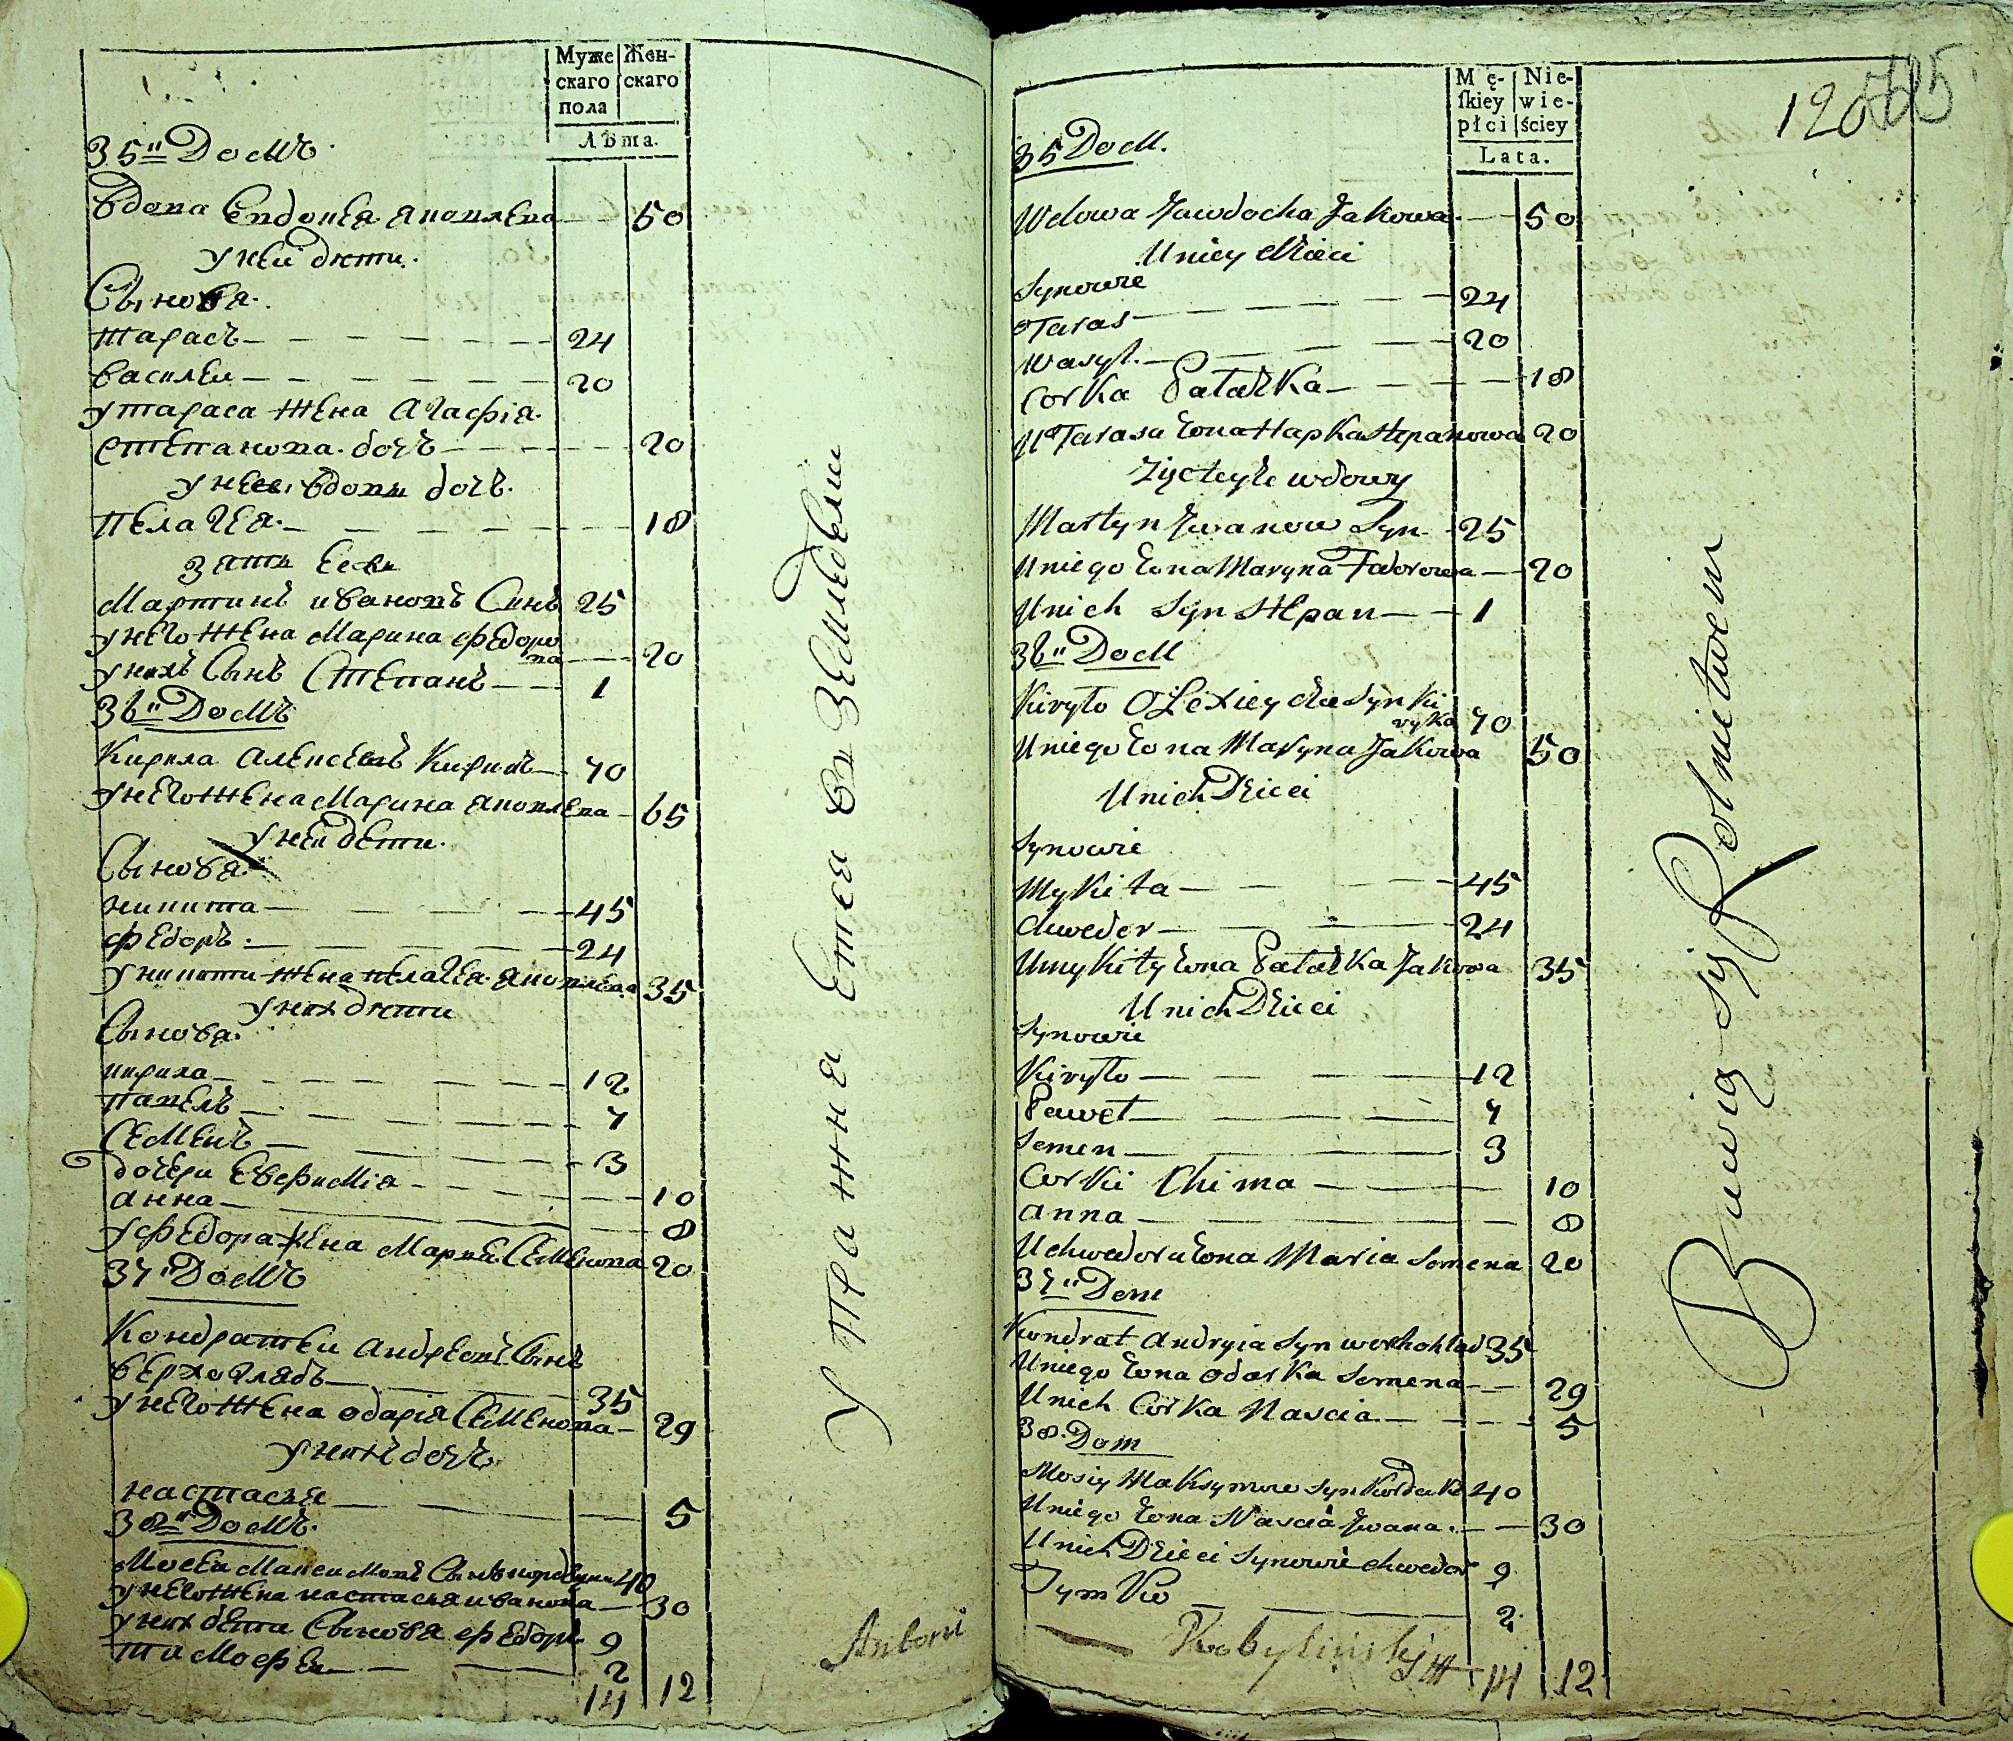 Муже
скаго
пола
Жен-
скаго
Лѣта.
35" Домъ.
Вдова Евдокея Яковлева 50
у ней дети.
Сыновя.
Тарасъ 24
Василеи 20
у Тараса жена Агафія
Степанова дочь 20
у неи вдовы дочь
Пелагея 18
зять Ееѣ
Мартинъ Ивановъ Синъ 25
у него жена Марина Федоро
ва 20
у нихъ Сынъ Степанъ 1
36" Домъ
Кирила Алексеевъ 70
у него жена Марина Яковлева 65
у неи дети.
Сыновя.
Никита 45
Федоръ 24
у Никити жена Пелагея Яковлева 35
у них дети
Сыновя.
Кирила 12
Павелъ 7
Семенъ 3
дочери Евфимія 10
Анна 8
у Федора жена Мария Семенова 20
37" Домъ
Кондратеи Андреевъ Сынъ
Верхоглядъ 35
у него жена Одарія Семенова 29
у нихъ дочь
Настасья 5
38" Домъ.
Мосеи Максимовъ Сынъ 40
у него жена Настася Иванова 30
у них дети Сыновя Федоръ 9
Тимофеи 2
14 12
Упражненя Ется въ Земледели
Antoni
Mę-
ſkiey
płci
Nie-
wie-
ściey
Lata.
120
35 Dom.
Wdowa Jawdocha Jakowa 50
U niey dzieci
Synowie
Taras 24
Wasyl 20
Corka Pałażka 18
U Tarasa żona Hapka Stepanowa 20
Zięc teyże wdowy
Martyn Jwanow Syn 25
U niego żona Maryna Fedorowa 20
U nich Syn Stepan 1
36" Dom
Kiryło Olexieycha Syn Ki
ryka 70
U niego żona Maryna Jakowa 50
U nich Dzieci
Synowie
Mykita 45
Chwedor 24
U Mykity żona Pałażka Jakowa 35
U nich Dzieci
Synowie
Kiryło 12
Paweł 7
Semen 3
Corki Chima 10
Anna 8
U Chwedora żona Maria Semena 20
37" Dom
Kondrat Andryia Syn Werhohlad 35
U niego żona Odarka Semena 29
U nich Corka Nascia 5
38. Dom
Mosiy Maksymow Syn 40
U niego żona Nascia Jwana 30
U nich Dzieci Synowie Chwedor 9
Tymko 2
Kobyliński 14 12
Bawią się Rolnictwem